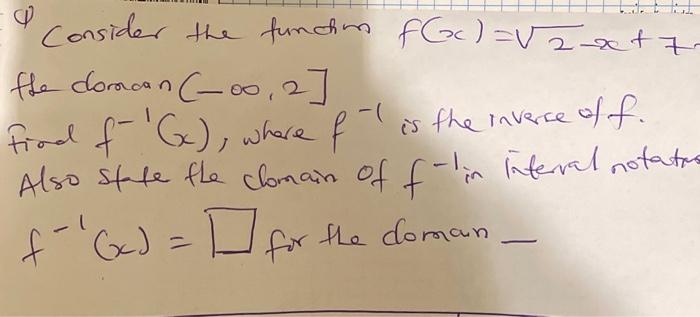 Q) Consider the function f(x) = √2-x + 7
the domain (-∞, 2]
find f⁻¹(x), where f⁻¹ is the inverse of f.
Also state the domain of f⁻¹ in Interval notation
f⁻¹(x) = □ for the domain _